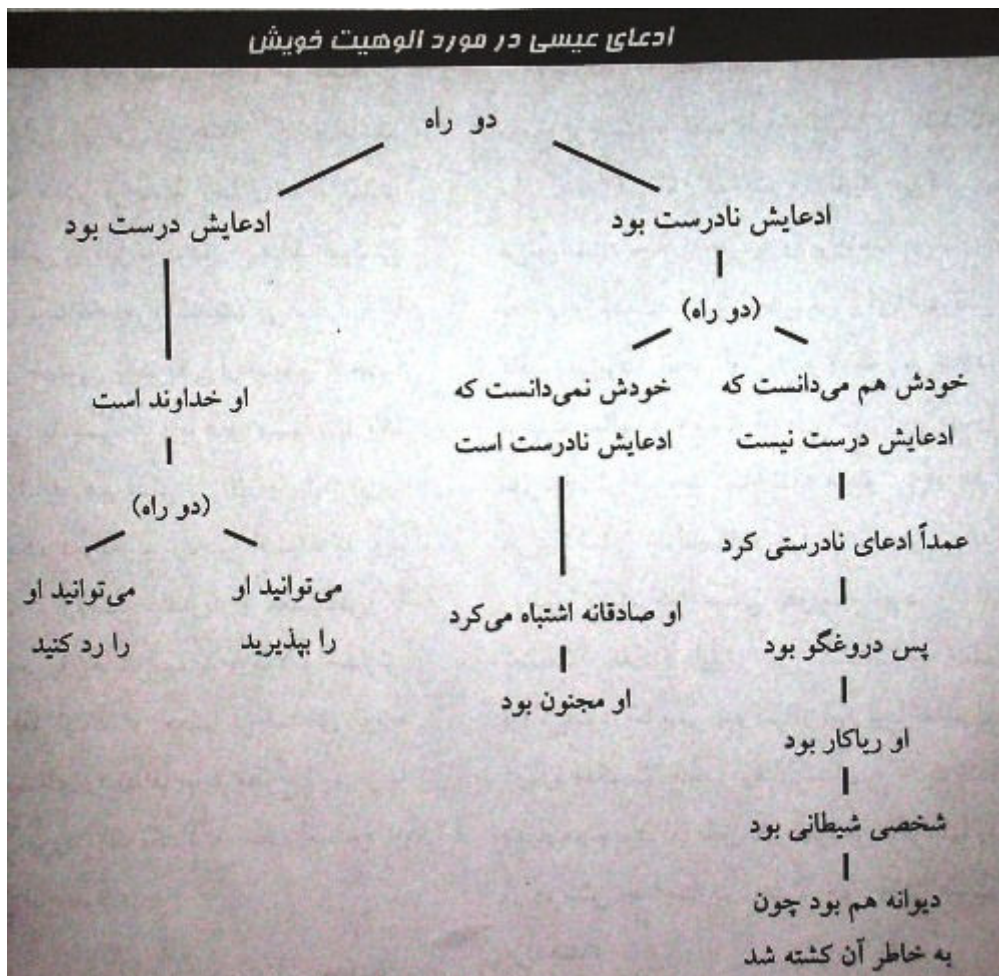 ادعای عیسی در مورد الوهیت خویش
دو راه
ادعایش نادرست بود
(دو راه)
خودش هم می‌دانست که
ادعایش درست نیست
عمداً ادعای نادرستی کرد
پس دروغگو بود
او ریاکار بود
شخصی شیطانی بود
دیوانه هم بود چون
به خاطر آن کشته شد
خودش نمی‌دانست که
ادعایش نادرست است
او صادقانه اشتباه می‌کرد
او مجنون بود
ادعایش درست بود
او خداوند است
(دو راه)
می‌توانید او
را بپذیرید
می‌توانید او
را رد کنید